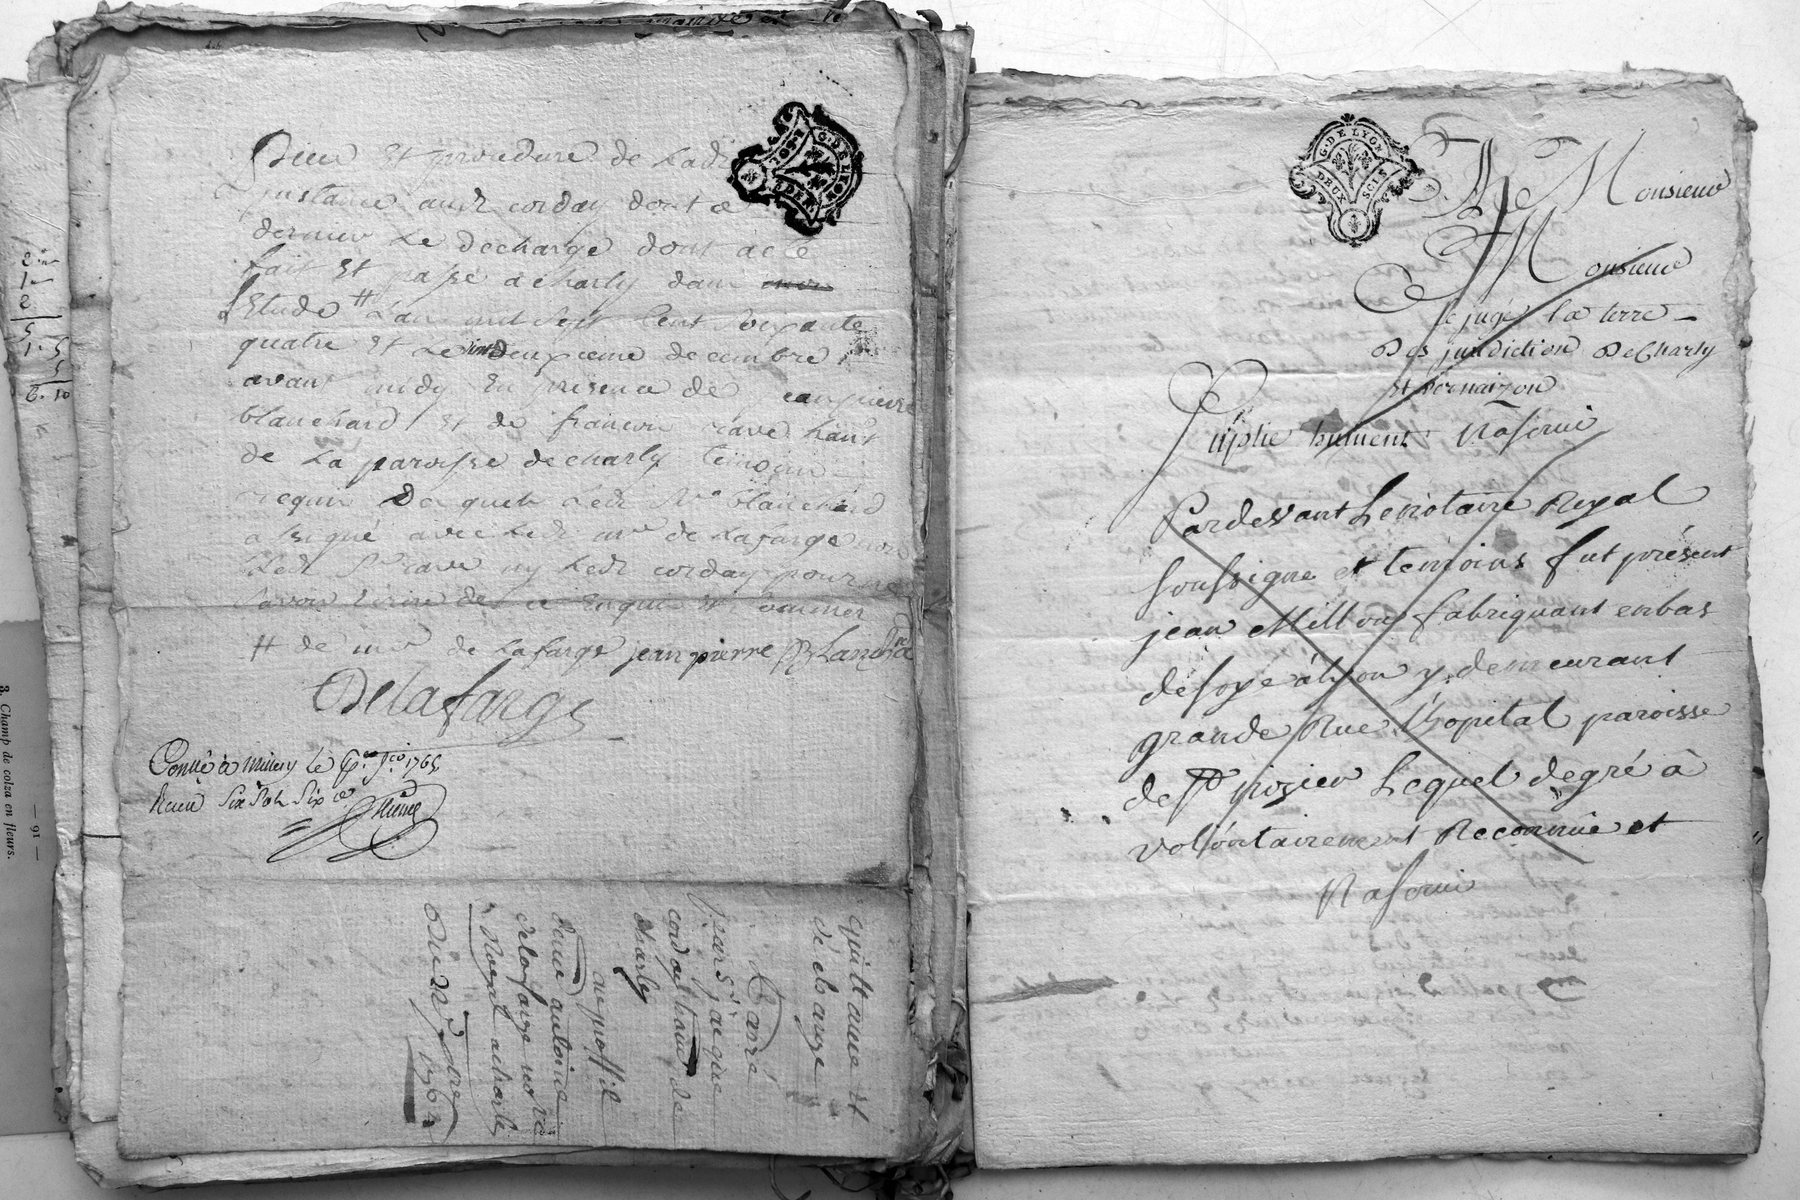 et procedure de Ladt
instance audt corday dont ce
dernier Le decharge dont acte
fait Et passé a charly dans
Etude # L'an mil Sept Cent Soixante
quatre Et Le vint deuxieme decembre
avant midy En presence de jean pierre
blanchard Et de francois rave habt
de La paroisse de charly temoins
requis Lesquels Ledt Sr blanchard
a signé avec Ledt mr de Lafarge non
Ledt Sr rave ny Ledt corday pour ne
Savoir Ecrire de ce Enquis Et
# de mr de Lafarge jean pierre BLanchard
Delafarge
Conllé à Millery Le 1765
Recu Six Sols Six
quittance et
décharge
par Sr jacque
corday thaud de
charly
au proffit
de me antoine
delafarge no.re
Royal acharly
Du 22e Xbre 1764
G. DE LYON
2
1
2
5
6. 10
— 91 —
3. Champ de colza en fleurs.
G. DE LYON
DEUX SOLS
A Monsieur
Monsieur
Le juge de la terre
Des jurisdiction De Charly
Et Vernaizon
Suplie hument
Pardevant Le notaire Royal
Soussigné et temoins fut présent
jean Millon fabriquant en bas
de soye à Lion y demeurant
grande Rue L'hopital paroisse
de St nisier Lequel de gré à
volontairement Reconnue et